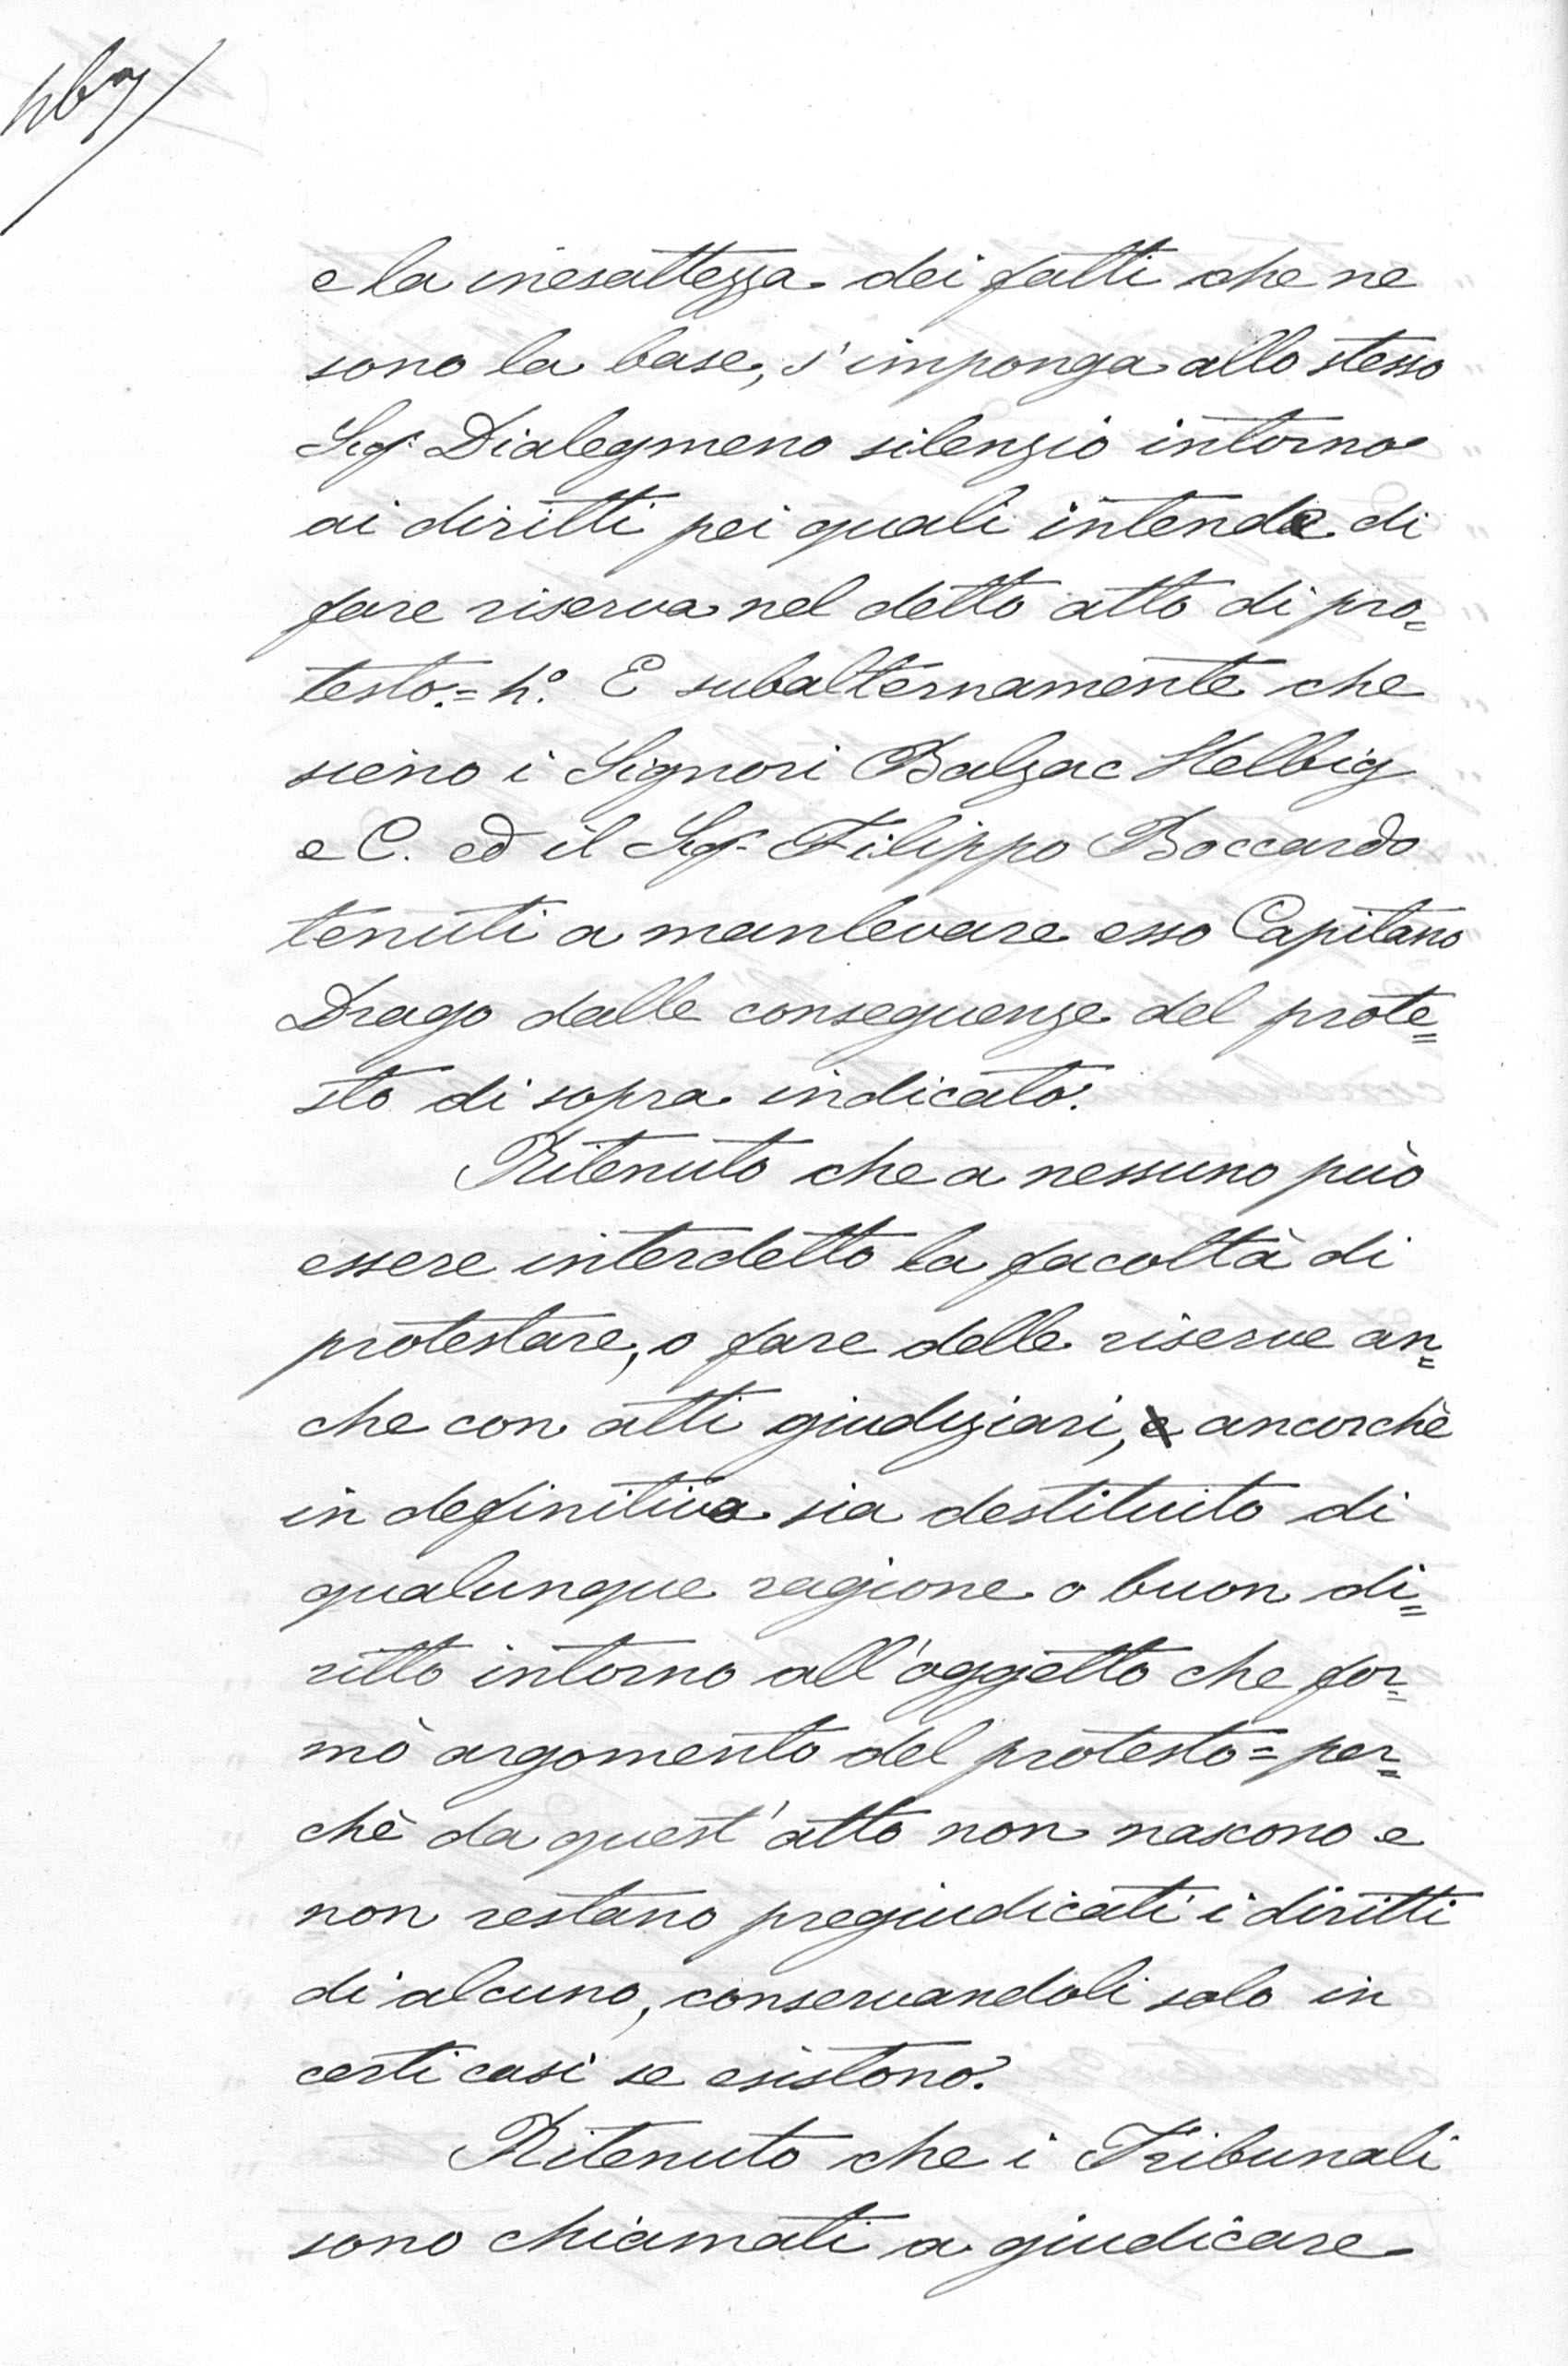 e la inesattezza dei fatti che ne
sono la base, s'imponga allo stesso
Sigr. Dialegmeno silenzio intorno
ai diritti pei quali intende di
fare riserva nel detto atto di pro=
testo.= 4.° E subalternamente che
sieno i Signori Balzac Helbig
e C. ed il Sigr. Filippo Boccardo
tenuti a manlevare esso Capitano
Drago dalle conseguenze del prote=
sto di sopra indicato.
Ritenuto che a nessuno può
essere interdetto la facoltà di
protestare, o fare delle riserve an=
che con atti giudiziari, ancorchè
in definitiva sia destituito di
qualunque ragione o buon di=
ritto intorno all'oggetto che for=
mò argomento del protesto = per=
chè da quest'atto non nascono e
non restano pregiudicati i diritti
di alcuno, conservandoli solo in
certi casi se esistono.
Ritenuto che i Tribunali
sono chiamati a giudicare